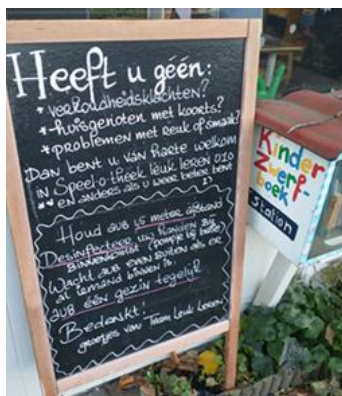 Heeft u géén:
* verkoudheidsklachten?
* huisgenoten met koorts?
* problemen met reuk of smaak?
Dan bent u van harte welkom
in Speel-o-theek Leuk Leren 010
** en anders als u weer beter bent
Houd aub 1,5 meter afstand
Desinfecteer uw handen bij
binnenkomst (pompje bij balie)
Wacht aub even buiten als er
al iemand binnen is.
aub één gezin tegelijk
Bedankt!
groetjes van Team Leuk Leren
Kinder
Zwerf-
boek
Station